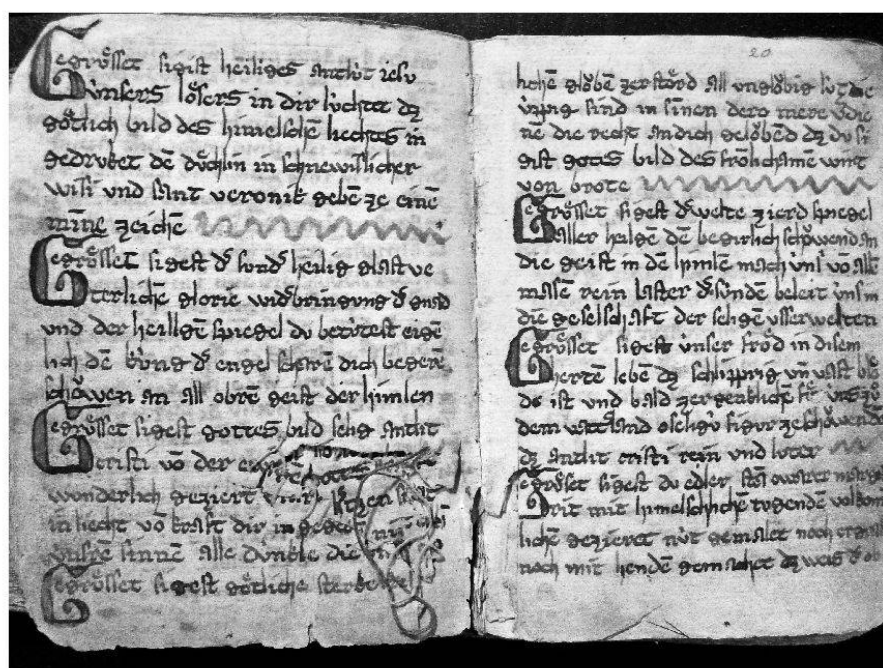 Gegrůsset sigist heiliges antlút iesu
únsers lősers in dir lúchtet dz
gőtlich bild des himelschē liechtes in
gedruket dē důchlin in schnewislicher
wisi und sant veronik gebē ze einē
minē zeichē
Gegrůsset sigest d' heilig glast ve
terlichē glorie wid'bringung d' gnad
und der heilgē spiegel du eigē
lich dē kúng d' engel scharē dich begerē
schőwen an all obrē geist der himlen
Gegrůsset sigest gottes bild selig antlit
cristi vō der
wonderlich geziert
in liecht vō kraft dir in
únsrē sinnē alle die
Gegrůsset sigest gőtliche
20
lichē glőbē zerstőrd all unglőbig lút die
úppig sind in sinen dero
nē die recht andich gelőbēd dz du si
gist gotes bild des frőlichamē wirt
von brote
Gegrůsset sigest d' welte zierd spiegel
aller heilgē dē begirlich schőwend an
die geist in dē himlē mach úns vō allē
masē rein laster d' súndē beleit úns in
die geselschaft der seligē usserwelten
Gegrůsset sigest únser frőd in disem
hertē lebē dz schlipfrig vn vast blő
de ist und bald zergenklichē fůr úns zů
dem vatterland o seligú figur ze schőwend
dz antlit cristi rein und luter
Gegrůsset sigest du edler
mit himelschlichē tugendē volkom
lichē gezieret nút gemalet noch
noch mit hendē gemachet dz weis d'